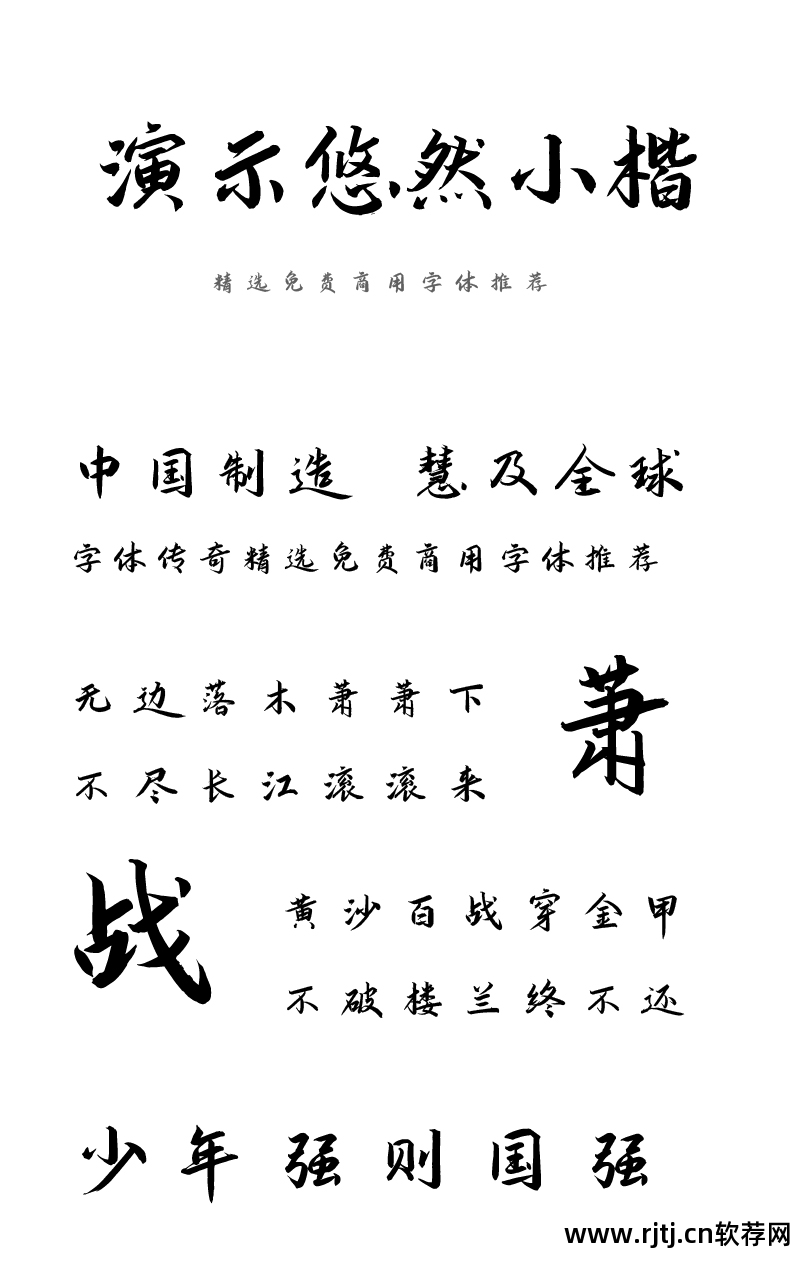 演示悠然小楷
精选免费商用字体推荐
中国制造 慧及全球
字体传奇精选免费商用字体推荐
无边落木萧萧下
萧
不尽长江滚滚来
战
黄沙百战穿金甲
不破楼兰终不还
少年强则国强
www.rjtj.cn软荐网